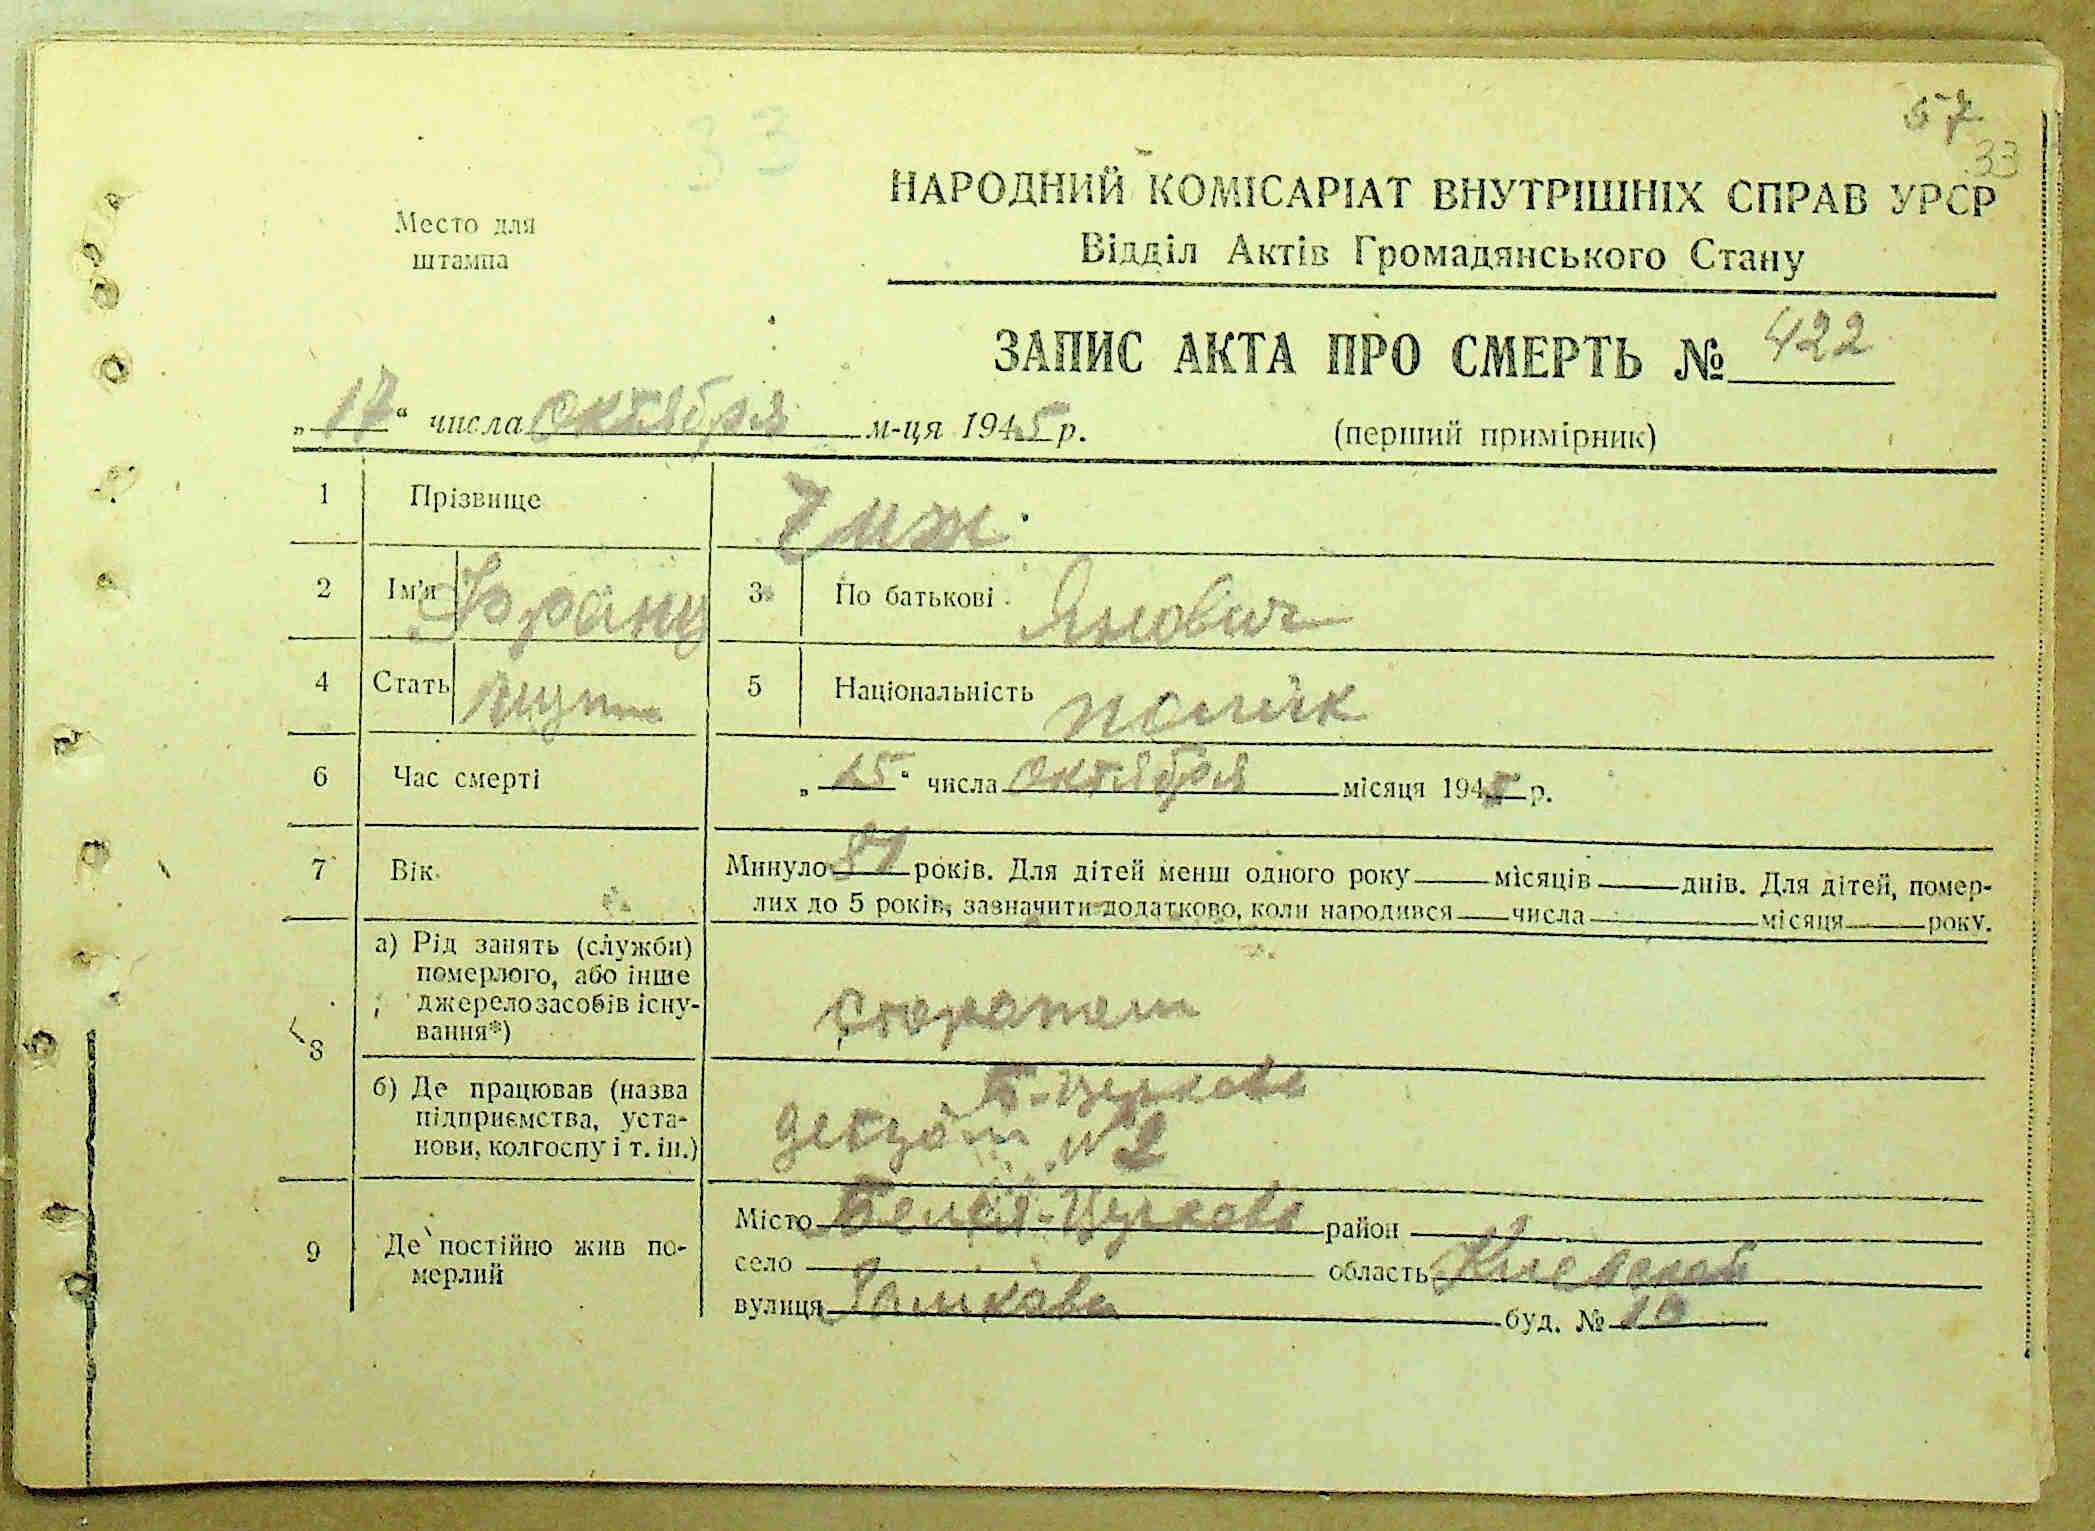 57
33
33
Место для
штампа
НАРОДНИЙ КОМІСАРІАТ ВНУТРІШНІХ СПРАВ УРСР
Відділ Актів Громадянського Стану
ЗАПИС АКТА ПРО СМЕРТЬ № 422
„17“ числа октября м-ця 1945 р. (перший примірник)
1 Прізвище Чиж
2 Ім'я Франц 3 По батькові Янович
4 Стать муж 5 Національність поляк
6 Час смерті „15“ числа октября місяця 1945 р.
7 Вік Минуло 81 років. Для дітей менш одного року місяців днів. Для дітей, помер-
лих до 5 років, зазначити додатково, коли народився числа місяця року.
8 а) Рід занять (служби)
померлого, або інше
джерело засобів існу-
вання*)
сторожем
б) Де працював (назва
підприємства, уста-
нови, колгоспу і т. ін.)
Б-Церковь
детдом № 2
9 Де постійно жив по-
мерлий
Місто Белая-Церковь район
село область Киевской
вулиця буд. №